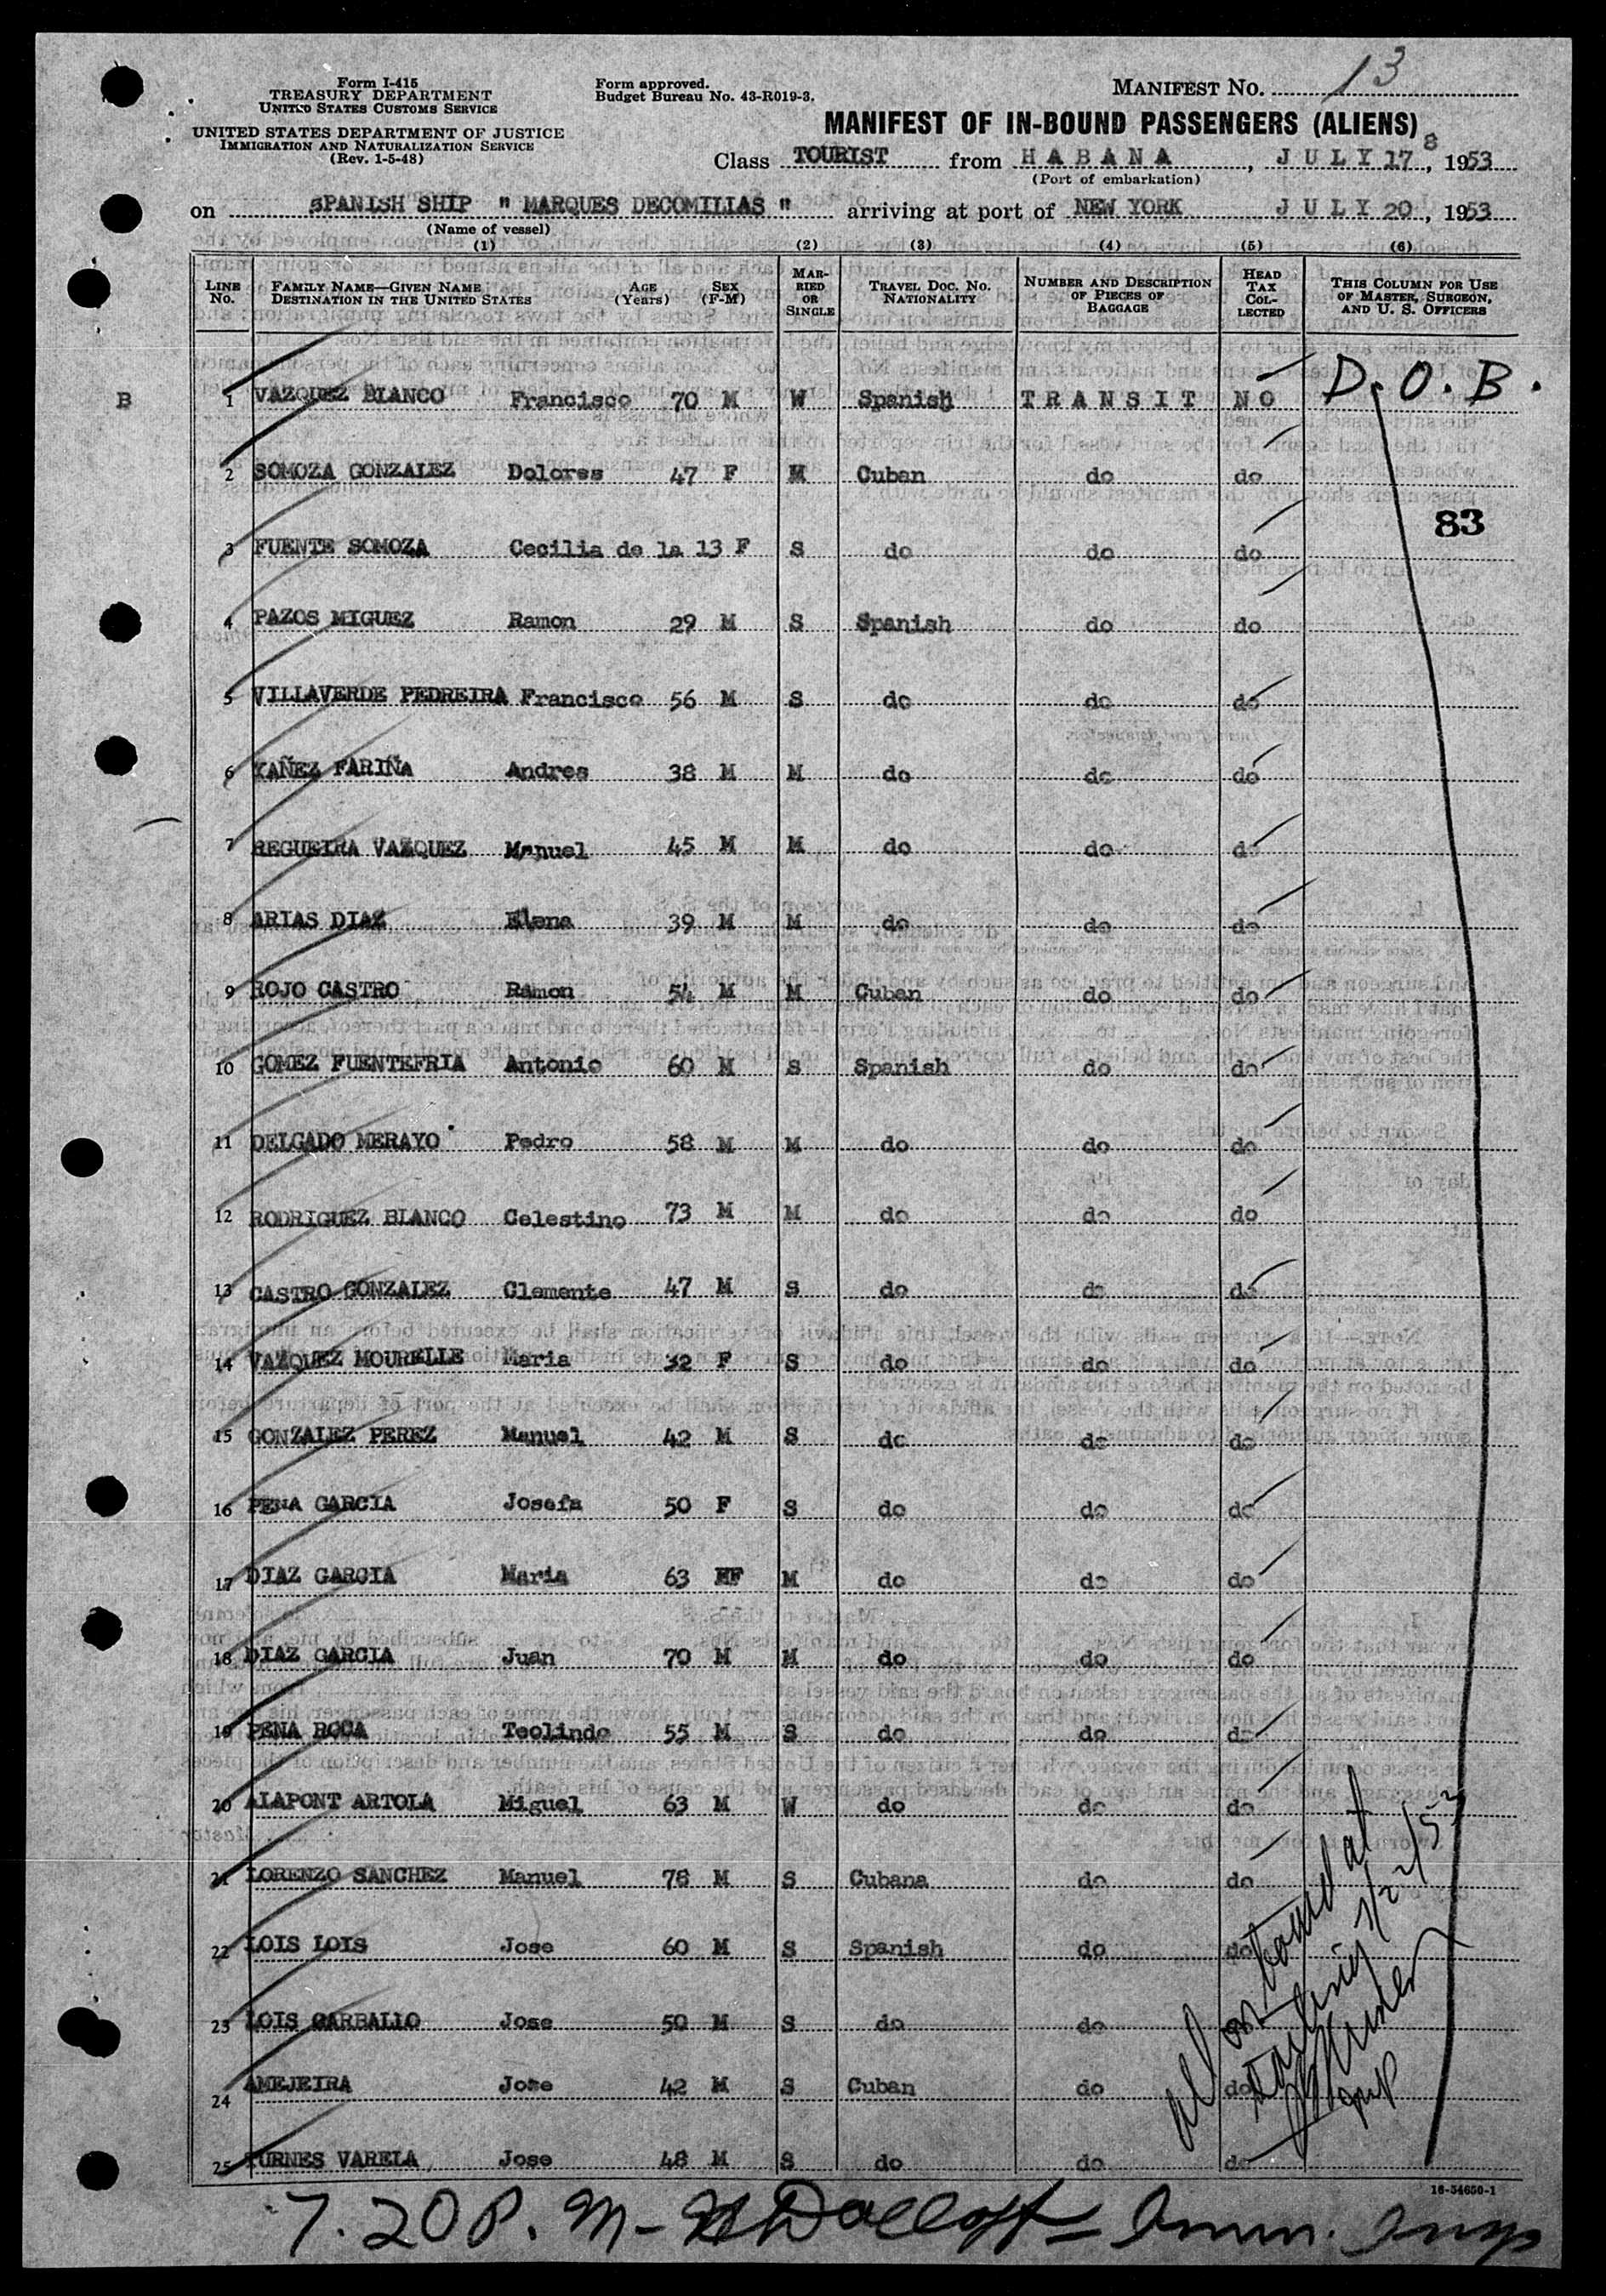 Form I-415
TREASURY DEPARTMENT
UNITED STATES CUSTOMS SERVICE
UNITED STATES DEPARTMENT OF JUSTICE
IMMIGRATION AND NATURALIZATION SERVICE
(Rev. 1-5-48)
Form approved.
Budget Bureau No. 43-R019-3.
MANIFEST NO. 13
MANIFEST OF IN-BOUND PASSENGERS (ALIENS)
Class TOURIST from HABANA, JULY 17 8, 1953
(Port of embarkation)
on SPANISH SHIP " MARQUES DECOMILLAS " arriving at port of NEW YORK JULY 20, 1953
(Name of vessel)
(1) (2) (3) (4) (5) (6)
LINE No. FAMILY NAME—GIVEN NAME DESTINATION IN THE UNITED STATES AGE (Years) SEX (F-M) MARRIED OR SINGLE TRAVEL DOC. NO. NATIONALITY NUMBER AND DESCRIPTION OF PIECES OF BAGGAGE HEAD TAX COLLECTED THIS COLUMN FOR USE OF MASTER, SURGEON, AND U. S. OFFICERS
B 1 VAZQUEZ BLANCO Francisco 70 M W Spanish TRANSIT NO D.O.B.
2 SOMOZA GONZALEZ Dolores 47 F M Cuban do do
83
3 FUENTE SOMOZA Cecilia de la 13 F S do do do
4 PAZOS MIGUEZ Ramon 29 M S Spanish do do
5 VILLAVERDE PEDREIRA Francisco 56 M S do do do
6 YAÑEZ FARIÑA Andres 38 M M do do do
7 REGUEIRA VAZQUEZ Manuel 45 M M do do do
8 ARIAS DIAZ Elena 39 M M do do do
9 ROJO CASTRO Ramon 54 M M Cuban do do
10 GOMEZ FUENTEFRIA Antonio 60 M S Spanish do do
11 DELGADO MERAYO Pedro 58 M M do do do
12 RODRIGUEZ BLANCO Celestino 73 M M do do do
13 CASTRO GONZALEZ Clemente 47 M S do do do
14 VAZQUEZ MOURELLE Maria 32 F S do do do
15 GONZALEZ PEREZ Manuel 42 M S do do do
16 PENA GARCIA Josefa 50 F S do do do
17 DIAZ GARCIA Maria 63 MF M do do do
18 DIAZ GARCIA Juan 70 M M do do do
19 PENA ROCA Teolindo 55 M S do do do
20 ALAPONT ARTOLA Miguel 63 M W do do do
21 LORENZO SANCHEZ Manuel 78 M S Cubana do do
22 LOIS LOIS Jose 60 M S Spanish do do
23 LOIS CARBALLO Jose 50 M S do do do
24 AMEJEIRA Jose 42 M S Cuban do do
25 TURNES VARELA Jose 48 M S do do do
all on board at
sailing
16-54650-1
7.20 P.M- Immn. Insp